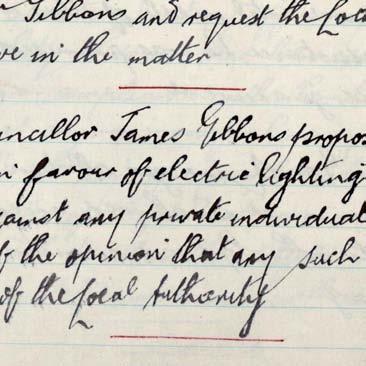 Gibbons and request the Loca
ve in the matter
ncillor James Gibbons propos
in favour of electric lighting
gainst any private individual
f the opinion that any such
of the Local Authority